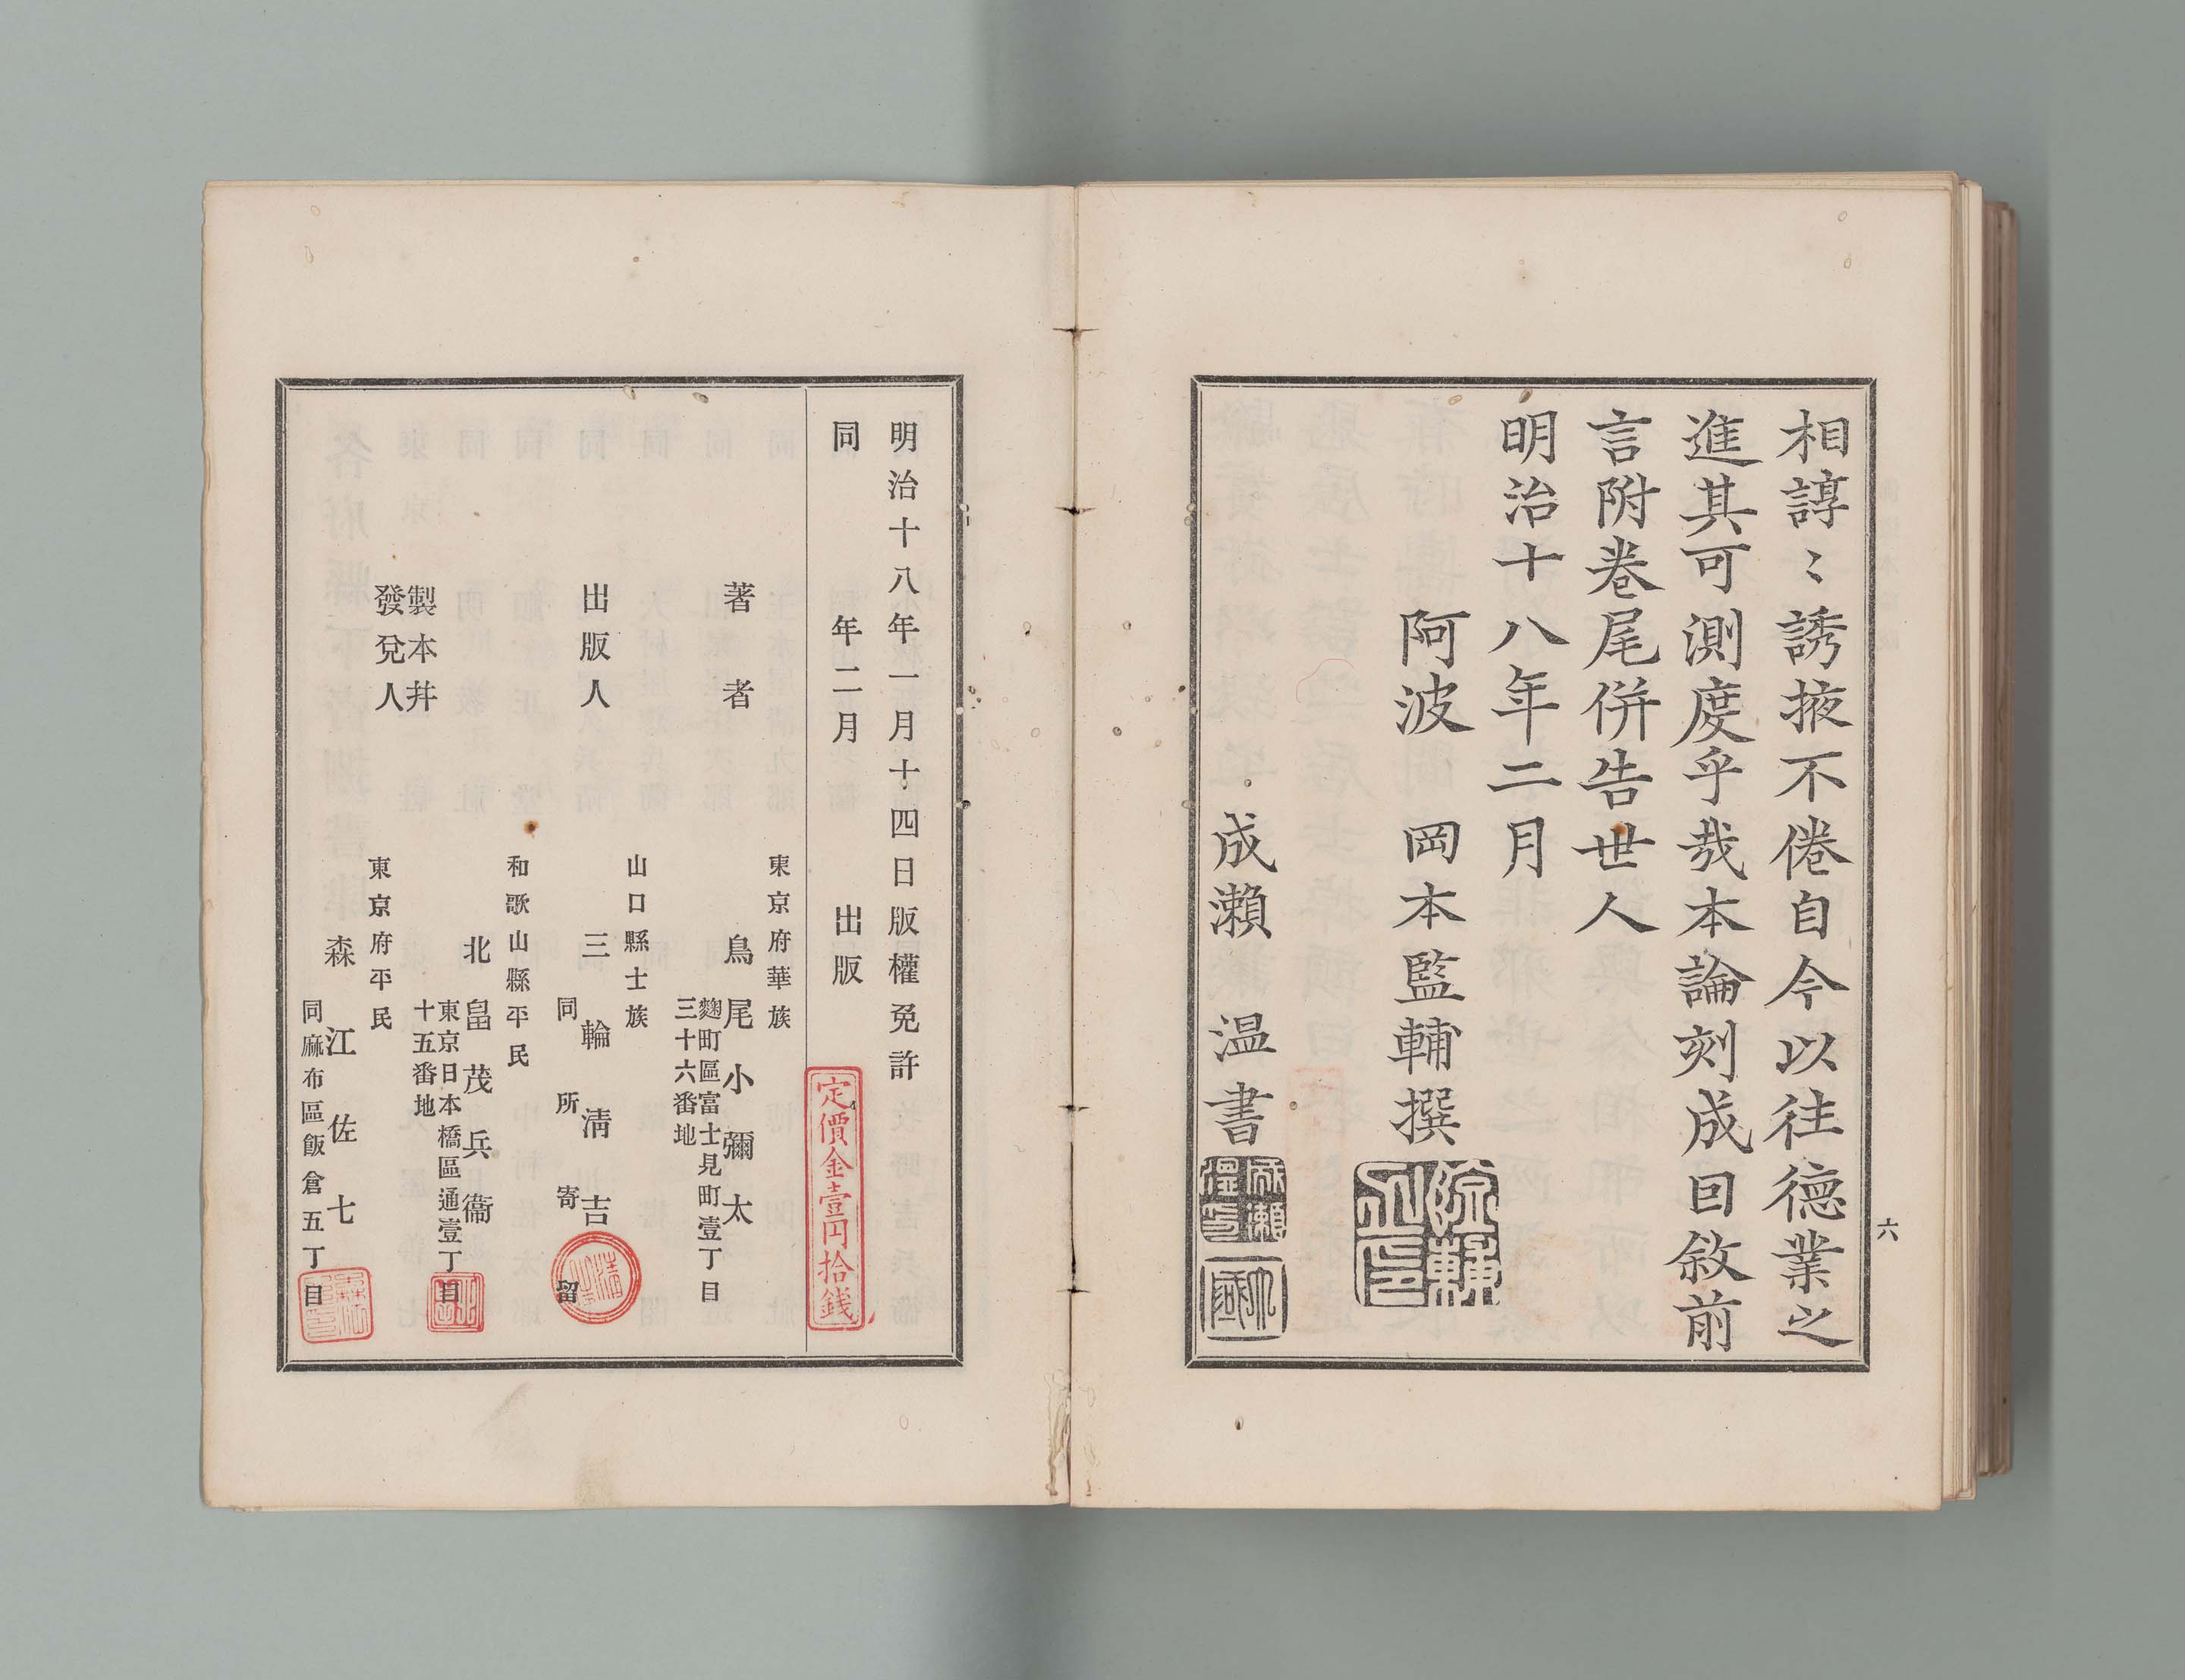 相諄〻誘掖不倦自今以往德業之
進其可測度乎哉本論刻成回敘前
言附巻尾併告世人
明治十八年二月
阿波 岡本監輔撰
成瀬 温書
六
明治十八年一月十四日版權免許
同 年二月 出版
定價金壹円拾銭
著者
東京府華族
鳥尾小彌太
麴町區富士見町壹丁目
三十六番地
出版人
山口縣士族
三輪淸吉
同所寄留
製本幷
發兌人
和歌山縣平民
北畠茂兵衞
東京日本橋區通壹丁目
十五番地
東京府平民
森江佐七
同麻布區飯倉五丁目